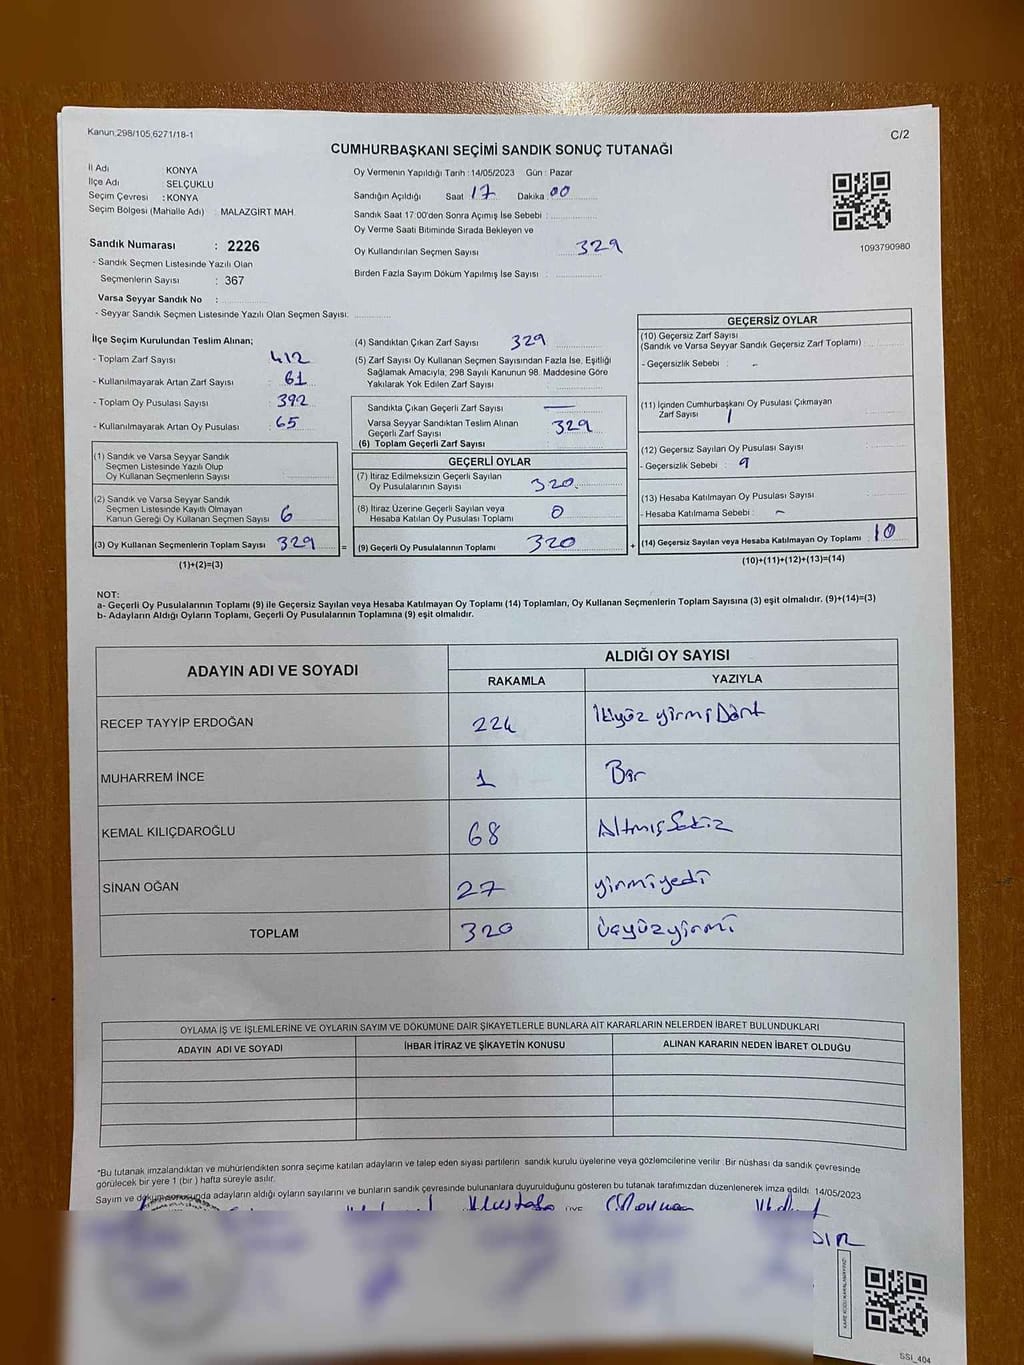 Kanun.298/105,6271/18-1
C/2
CUMHURBAŞKANI SEÇİMİ SANDIK SONUÇ TUTANAĞI
İl Adı KONYA
İlçe Adı SELÇUKLU
Seçim Çevresi : KONYA
Seçim Bölgesi (Mahalle Adı) : MALAZGİRT MAH.
Sandık Numarası : 2226
- Sandık Seçmen Listesinde Yazılı Olan
Seçmenlerin Sayısı : 367
Varsa Seyyar Sandık No :
- Seyyar Sandık Seçmen Listesinde Yazılı Olan Seçmen Sayısı:
Oy Vermenin Yapıldığı Tarih : 14/05/2023 Gün : Pazar
Sandığın Açıldığı Saat 17 Dakika 00
Sandık Saat 17:00'den Sonra Açımış İse Sebebi :
Oy Verme Saati Bitiminde Sırada Bekleyen ve
Oy Kullandırılan Seçmen Sayısı 329
Birden Fazla Sayım Döküm Yapılmış İse Sayısı :
1093790980
İlçe Seçim Kurulundan Teslim Alınan;
- Toplam Zarf Sayısı 412
- Kullanılmayarak Artan Zarf Sayısı 61
- Toplam Oy Pusulası Sayısı 392
- Kullanılmayarak Artan Oy Pusulası 65
(1) Sandık ve Varsa Seyyar Sandık
Seçmen Listesinde Yazılı Olup
Oy Kullanan Seçmenlerin Sayısı
(2) Sandık ve Varsa Seyyar Sandık
Seçmen Listesinde Kayıtlı Olmayan
Kanun Gereği Oy Kullanan Seçmen Sayısı 6
(3) Oy Kullanan Seçmenlerin Toplam Sayısı 329 =
(1)+(2)=(3)
(4) Sandıktan Çıkan Zarf Sayısı 329
(5) Zarf Sayısı Oy Kullanan Seçmen Sayısından Fazla İse, Eşitliği
Sağlamak Amacıyla, 298 Sayılı Kanunun 98. Maddesine Göre
Yakılarak Yok Edilen Zarf Sayısı
Sandıkta Çıkan Geçerli Zarf Sayısı —
Varsa Seyyar Sandıktan Teslim Alınan
Geçerli Zarf Sayısı 329
(6) Toplam Geçerli Zarf Sayısı
GEÇERLİ OYLAR
(7) İtiraz Edilmeksizin Geçerli Sayılan
Oy Pusulalarının Sayısı 320
(8) İtiraz Üzerine Geçerli Sayılan veya
Hesaba Katılan Oy Pusulası Toplamı 0
(9) Geçerli Oy Pusulalarının Toplamı 320 +
GEÇERSİZ OYLAR
(10) Geçersiz Zarf Sayısı
(Sandık ve Varsa Seyyar Sandık Geçersiz Zarf Toplamı)
- Geçersizlik Sebebi : -
(11) İçinden Cumhurbaşkanı Oy Pusulası Çıkmayan
Zarf Sayısı 1
(12) Geçersiz Sayılan Oy Pusulası Sayısı
- Geçersizlik Sebebi : 9
(13) Hesaba Katılmayan Oy Pusulası Sayısı
- Hesaba Katılmama Sebebi : -
(14) Geçersiz Sayılan veya Hesaba Katılmayan Oy Toplamı 10
(10)+(11)+(12)+(13)=(14)
NOT:
a- Geçerli Oy Pusulalarının Toplamı (9) ile Geçersiz Sayılan veya Hesaba Katılmayan Oy Toplamı (14) Toplamları, Oy Kullanan Seçmenlerin Toplam Sayısına (3) eşit olmalıdır. (9)+(14)=(3)
b- Adayların Aldığı Oyların Toplamı, Geçerli Oy Pusulalarının Toplamına (9) eşit olmalıdır.
ADAYIN ADI VE SOYADI
ALDIĞI OY SAYISI
RAKAMLA YAZIYLA
RECEP TAYYİP ERDOĞAN 224 İkiyüz yirmi Dört
MUHARREM İNCE 1 Bir
KEMAL KILIÇDAROĞLU 68 Altmış Sekiz
SİNAN OĞAN 27 yirmiyedi
TOPLAM 320 Üçyüzyirmi
OYLAMA İŞ VE İŞLEMLERİNE VE OYLARIN SAYIM VE DÖKÜMÜNE DAİR ŞİKAYETLERLE BUNLARA AİT KARARLARIN NELERDEN İBARET BULUNDUKLARI
ADAYIN ADI VE SOYADI İHBAR İTİRAZ VE ŞİKAYETİN KONUSU ALINAN KARARIN NEDEN İBARET OLDUĞU
*Bu tutanak imzalandıktan ve mühürlendikten sonra seçime katılan adayların ve talep eden siyasi partilerin sandık kurulu üyelerine veya gözlemcilerine verilir. Bir nüshası da sandık çevresinde
görülecek bir yere 1 (bir ) hafta süreyle asılır.
Sayım ve dökümsonucunda adayların aldığı oyların sayılarını ve bunların sandık çevresinde bulunanlara duyurulduğunu gösteren bu tutanak tarafımızdan düzenlenerek imza edildi. 14/05/2023
Mustafa
SSI_404